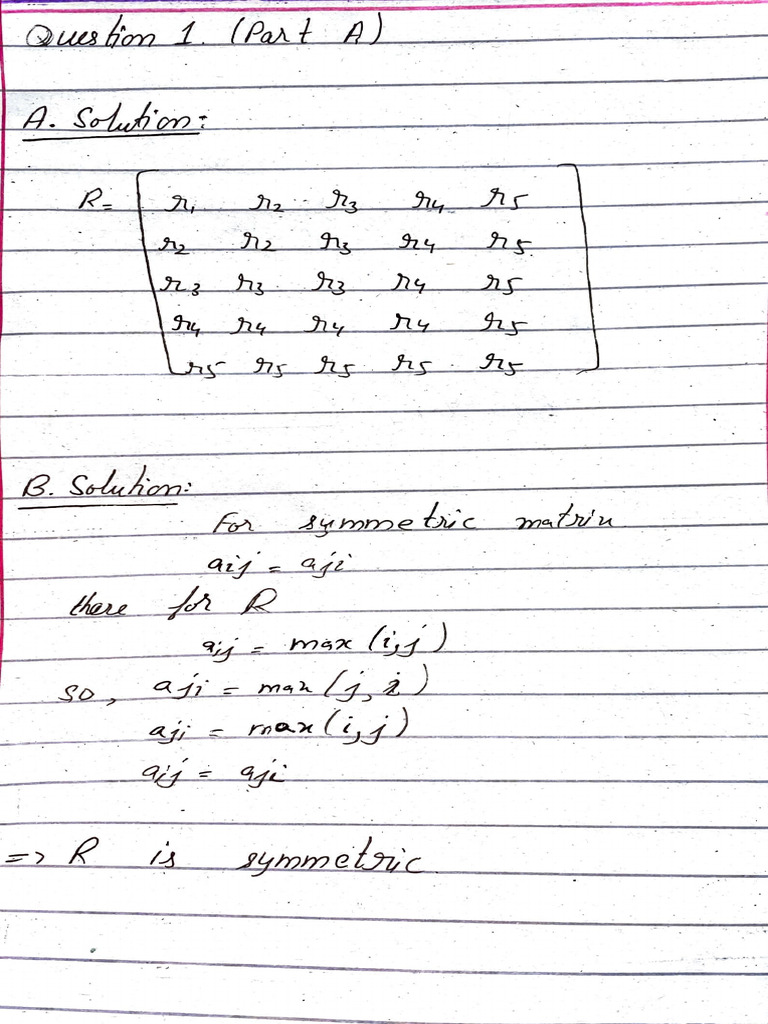 Question 1. (Part A)
A. Solution:
R= r1 r2 r3 r4 r5
r2 r2 r3 r4 r5
r3 r3 r3 r4 r5
r4 r4 r4 r4 r5
r5 r5 r5 r5 r5
B. Solution:
For symmetric matrix
aij = aji
there for R
aij = max (i,j)
so, aji = max (j, i)
aji = max (i, j)
aij = aji
=> R is symmetric